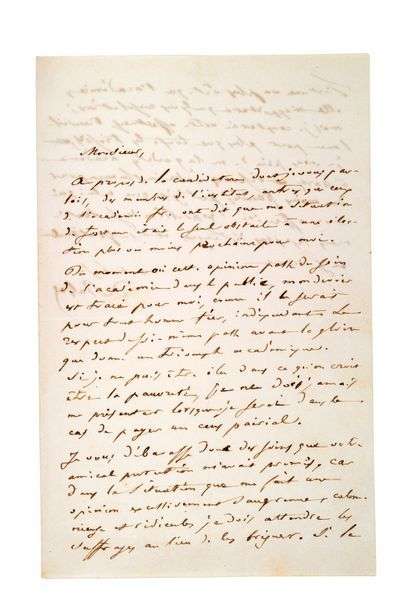 Monsieur,
A propos de la candidature dont je vous par-
lais, des membres de l'institut, autres que ceux
de l'académie fse, ont dit que ma situation
de fortune était le seul obstacle à une élec-
tion plus ou moins prochaine pour moi.
Du moment où cette opinion passe du sein
de l'académie dans le public, mon devoir
est tracé pour moi, comme il le serait
pour tout homme fier, indépendant. Le
respect de soi-même passe avant la gloire
que donne un triomphe académique.
Si je ne puis être élu dans ce qu'on croit
être la pauvreté, je ne dois jamais
me présenter lorsque je serai dans le
cas de payer un cens pairial.
Je vous débarasse donc des soins que votre
amicale protection m'avait promis, car
dans la situation que me fait une
opinion excessivement saugrenue, calom-
nieuse et ridicule, je dois attendre les
suffrages au lieu de les briguer. Si le